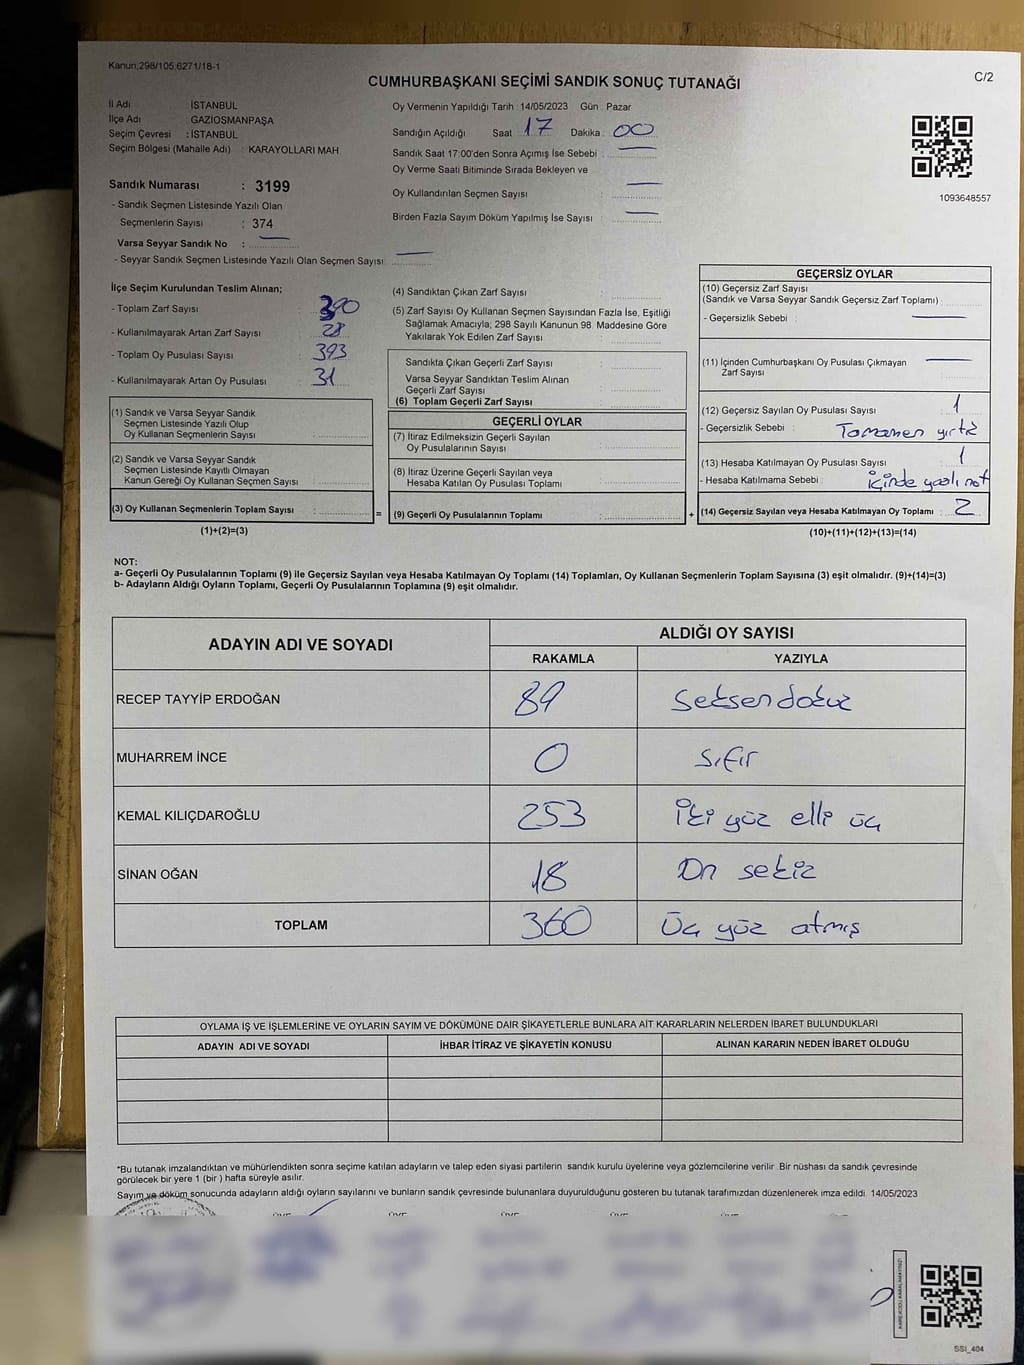 Kanun;298/105,6271/18-1
C/2
CUMHURBAŞKANI SEÇİMİ SANDIK SONUÇ TUTANAĞI
İl Adı : İSTANBUL
İlçe Adı : GAZİOSMANPAŞA
Seçim Çevresi : İSTANBUL
Seçim Bölgesi (Mahalle Adı) : KARAYOLLARI MAH
Sandık Numarası : 3199
- Sandık Seçmen Listesinde Yazılı Olan
Seçmenlerin Sayısı : 374
Varsa Seyyar Sandık No :
- Seyyar Sandık Seçmen Listesinde Yazılı Olan Seçmen Sayısı:
Oy Vermenin Yapıldığı Tarih : 14/05/2023 Gün : Pazar
Sandığın Açıldığı Saat 17 Dakika : 00
Sandık Saat 17:00'den Sonra Açımış İse Sebebi :
Oy Verme Saati Bitiminde Sırada Bekleyen ve
Oy Kullandırılan Seçmen Sayısı :
Birden Fazla Sayım Döküm Yapılmış İse Sayısı :
1093648557
İlçe Seçim Kurulundan Teslim Alınan;
- Toplam Zarf Sayısı : 390
- Kullanılmayarak Artan Zarf Sayısı : 28
- Toplam Oy Pusulası Sayısı : 393
- Kullanılmayarak Artan Oy Pusulası : 31
(1) Sandık ve Varsa Seyyar Sandık
Seçmen Listesinde Yazılı Olup
Oy Kullanan Seçmenlerin Sayısı :
(2) Sandık ve Varsa Seyyar Sandık
Seçmen Listesinde Kayıtlı Olmayan
Kanun Gereği Oy Kullanan Seçmen Sayısı :
(3) Oy Kullanan Seçmenlerin Toplam Sayısı :
(1)+(2)=(3)
=
(4) Sandıktan Çıkan Zarf Sayısı :
(5) Zarf Sayısı Oy Kullanan Seçmen Sayısından Fazla İse, Eşitliği
Sağlamak Amacıyla; 298 Sayılı Kanunun 98. Maddesine Göre
Yakılarak Yok Edilen Zarf Sayısı :
Sandıkta Çıkan Geçerli Zarf Sayısı :
Varsa Seyyar Sandıktan Teslim Alınan
Geçerli Zarf Sayısı :
(6) Toplam Geçerli Zarf Sayısı :
GEÇERLİ OYLAR
(7) İtiraz Edilmeksizin Geçerli Sayılan
Oy Pusulalarının Sayısı :
(8) İtiraz Üzerine Geçerli Sayılan veya
Hesaba Katılan Oy Pusulaları Toplamı :
(9) Geçerli Oy Pusulalarının Toplamı :
+
GEÇERSİZ OYLAR
(10) Geçersiz Zarf Sayısı
(Sandık ve Varsa Seyyar Sandık Geçersiz Zarf Toplamı) :
- Geçersizlik Sebebi :
(11) İçinden Cumhurbaşkanı Oy Pusulası Çıkmayan
Zarf Sayısı :
(12) Geçersiz Sayılan Oy Pusulası Sayısı : 1
- Geçersizlik Sebebi : Tamamen yırtık
(13) Hesaba Katılmayan Oy Pusulası Sayısı : 1
- Hesaba Katılmama Sebebi : içinde yazılı not
(14) Geçersiz Sayılan veya Hesaba Katılmayan Oy Toplamı : 2
(10)+(11)+(12)+(13)=(14)
NOT:
a- Geçerli Oy Pusulalarının Toplamı (9) ile Geçersiz Sayılan veya Hesaba Katılmayan Oy Toplamı (14) Toplamları, Oy Kullanan Seçmenlerin Toplam Sayısına (3) eşit olmalıdır. (9)+(14)=(3)
b- Adayların Aldığı Oyların Toplamı, Geçerli Oy Pusulalarının Toplamına (9) eşit olmalıdır.
ADAYIN ADI VE SOYADI
ALDIĞI OY SAYISI
RAKAMLA YAZIYLA
RECEP TAYYİP ERDOĞAN 89 Seksendokuz
MUHARREM İNCE 0 Sıfır
KEMAL KILIÇDAROĞLU 253 İki yüz elli üç
SİNAN OĞAN 18 On sekiz
TOPLAM 360 Üç yüz atmış
OYLAMA İŞ VE İŞLEMLERİNE VE OYLARIN SAYIM VE DÖKÜMÜNE DAİR ŞİKAYETLERLE BUNLARA AİT KARARLARIN NELERDEN İBARET BULUNDUKLARI
ADAYIN ADI VE SOYADI İHBAR İTİRAZ VE ŞİKAYETİN KONUSU ALINAN KARARIN NEDEN İBARET OLDUĞU
*Bu tutanak imzalandıktan ve mühürlendikten sonra seçime katılan adayların ve talep eden siyasi partilerin sandık kurulu üyelerine veya gözlemcilerine verilir. Bir nüshası da sandık çevresinde
görülecek bir yere 1 (bir ) hafta süreyle asılır.
Sayım ve döküm sonucunda adayların aldığı oyların sayılarını ve bunların sandık çevresinde bulunanlara duyurulduğunu gösteren bu tutanak tarafımızdan düzenlenerek imza edildi. 14/05/2023
KAREKODU KARALAMAYINIZ!
SSI_404